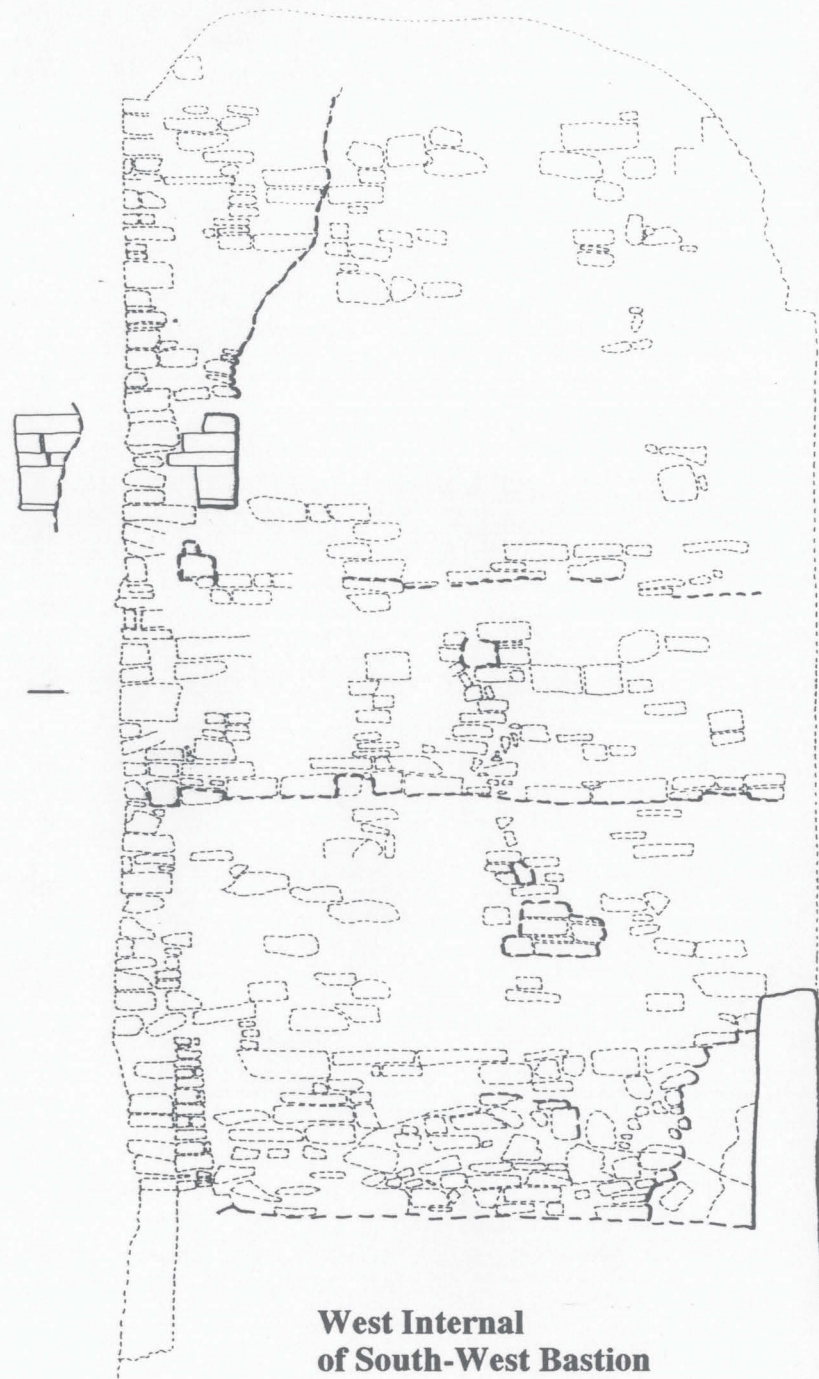 West Internal
of South-West Bastion